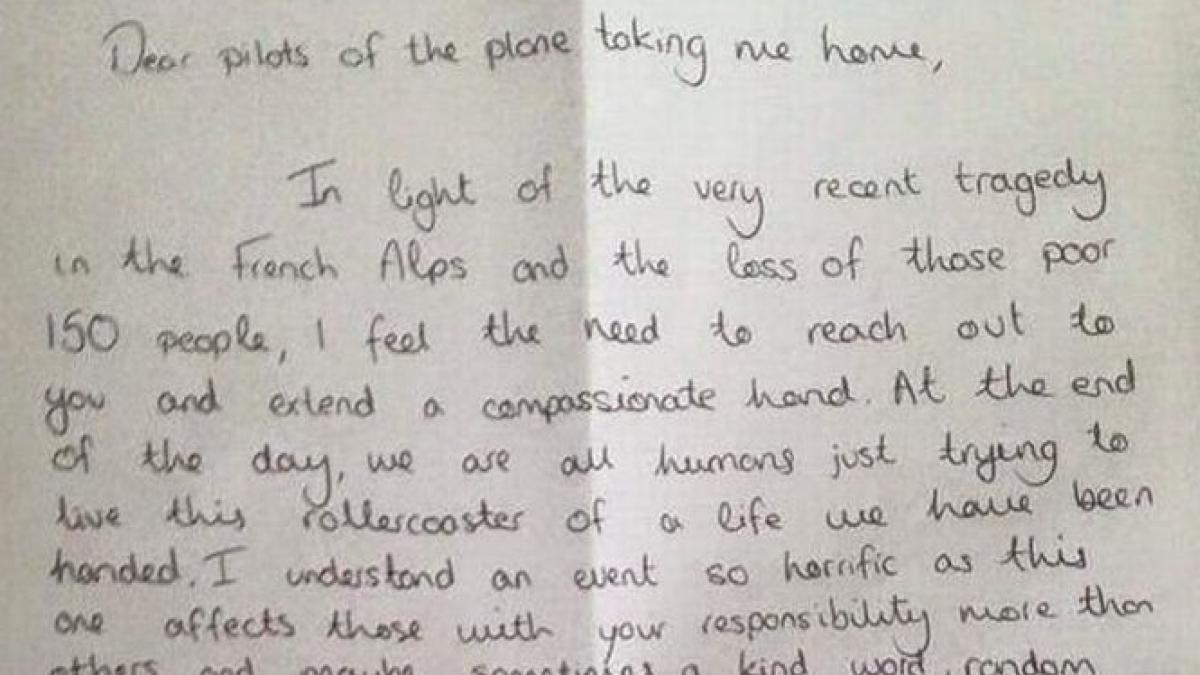 Dear pilots of the plane taking me home,
In light of the very recent tragedy
in the French Alps and the loss of those poor
150 people, I feel the need to reach out to
you and extend a compassionate hand. At the end
of the day, we are all humans just trying to
live this rollercoaster of a life we have been
handed. I understand an event so horrific as this
one affects those with your responsibility more than
others and maybe sometimes a kind word, random